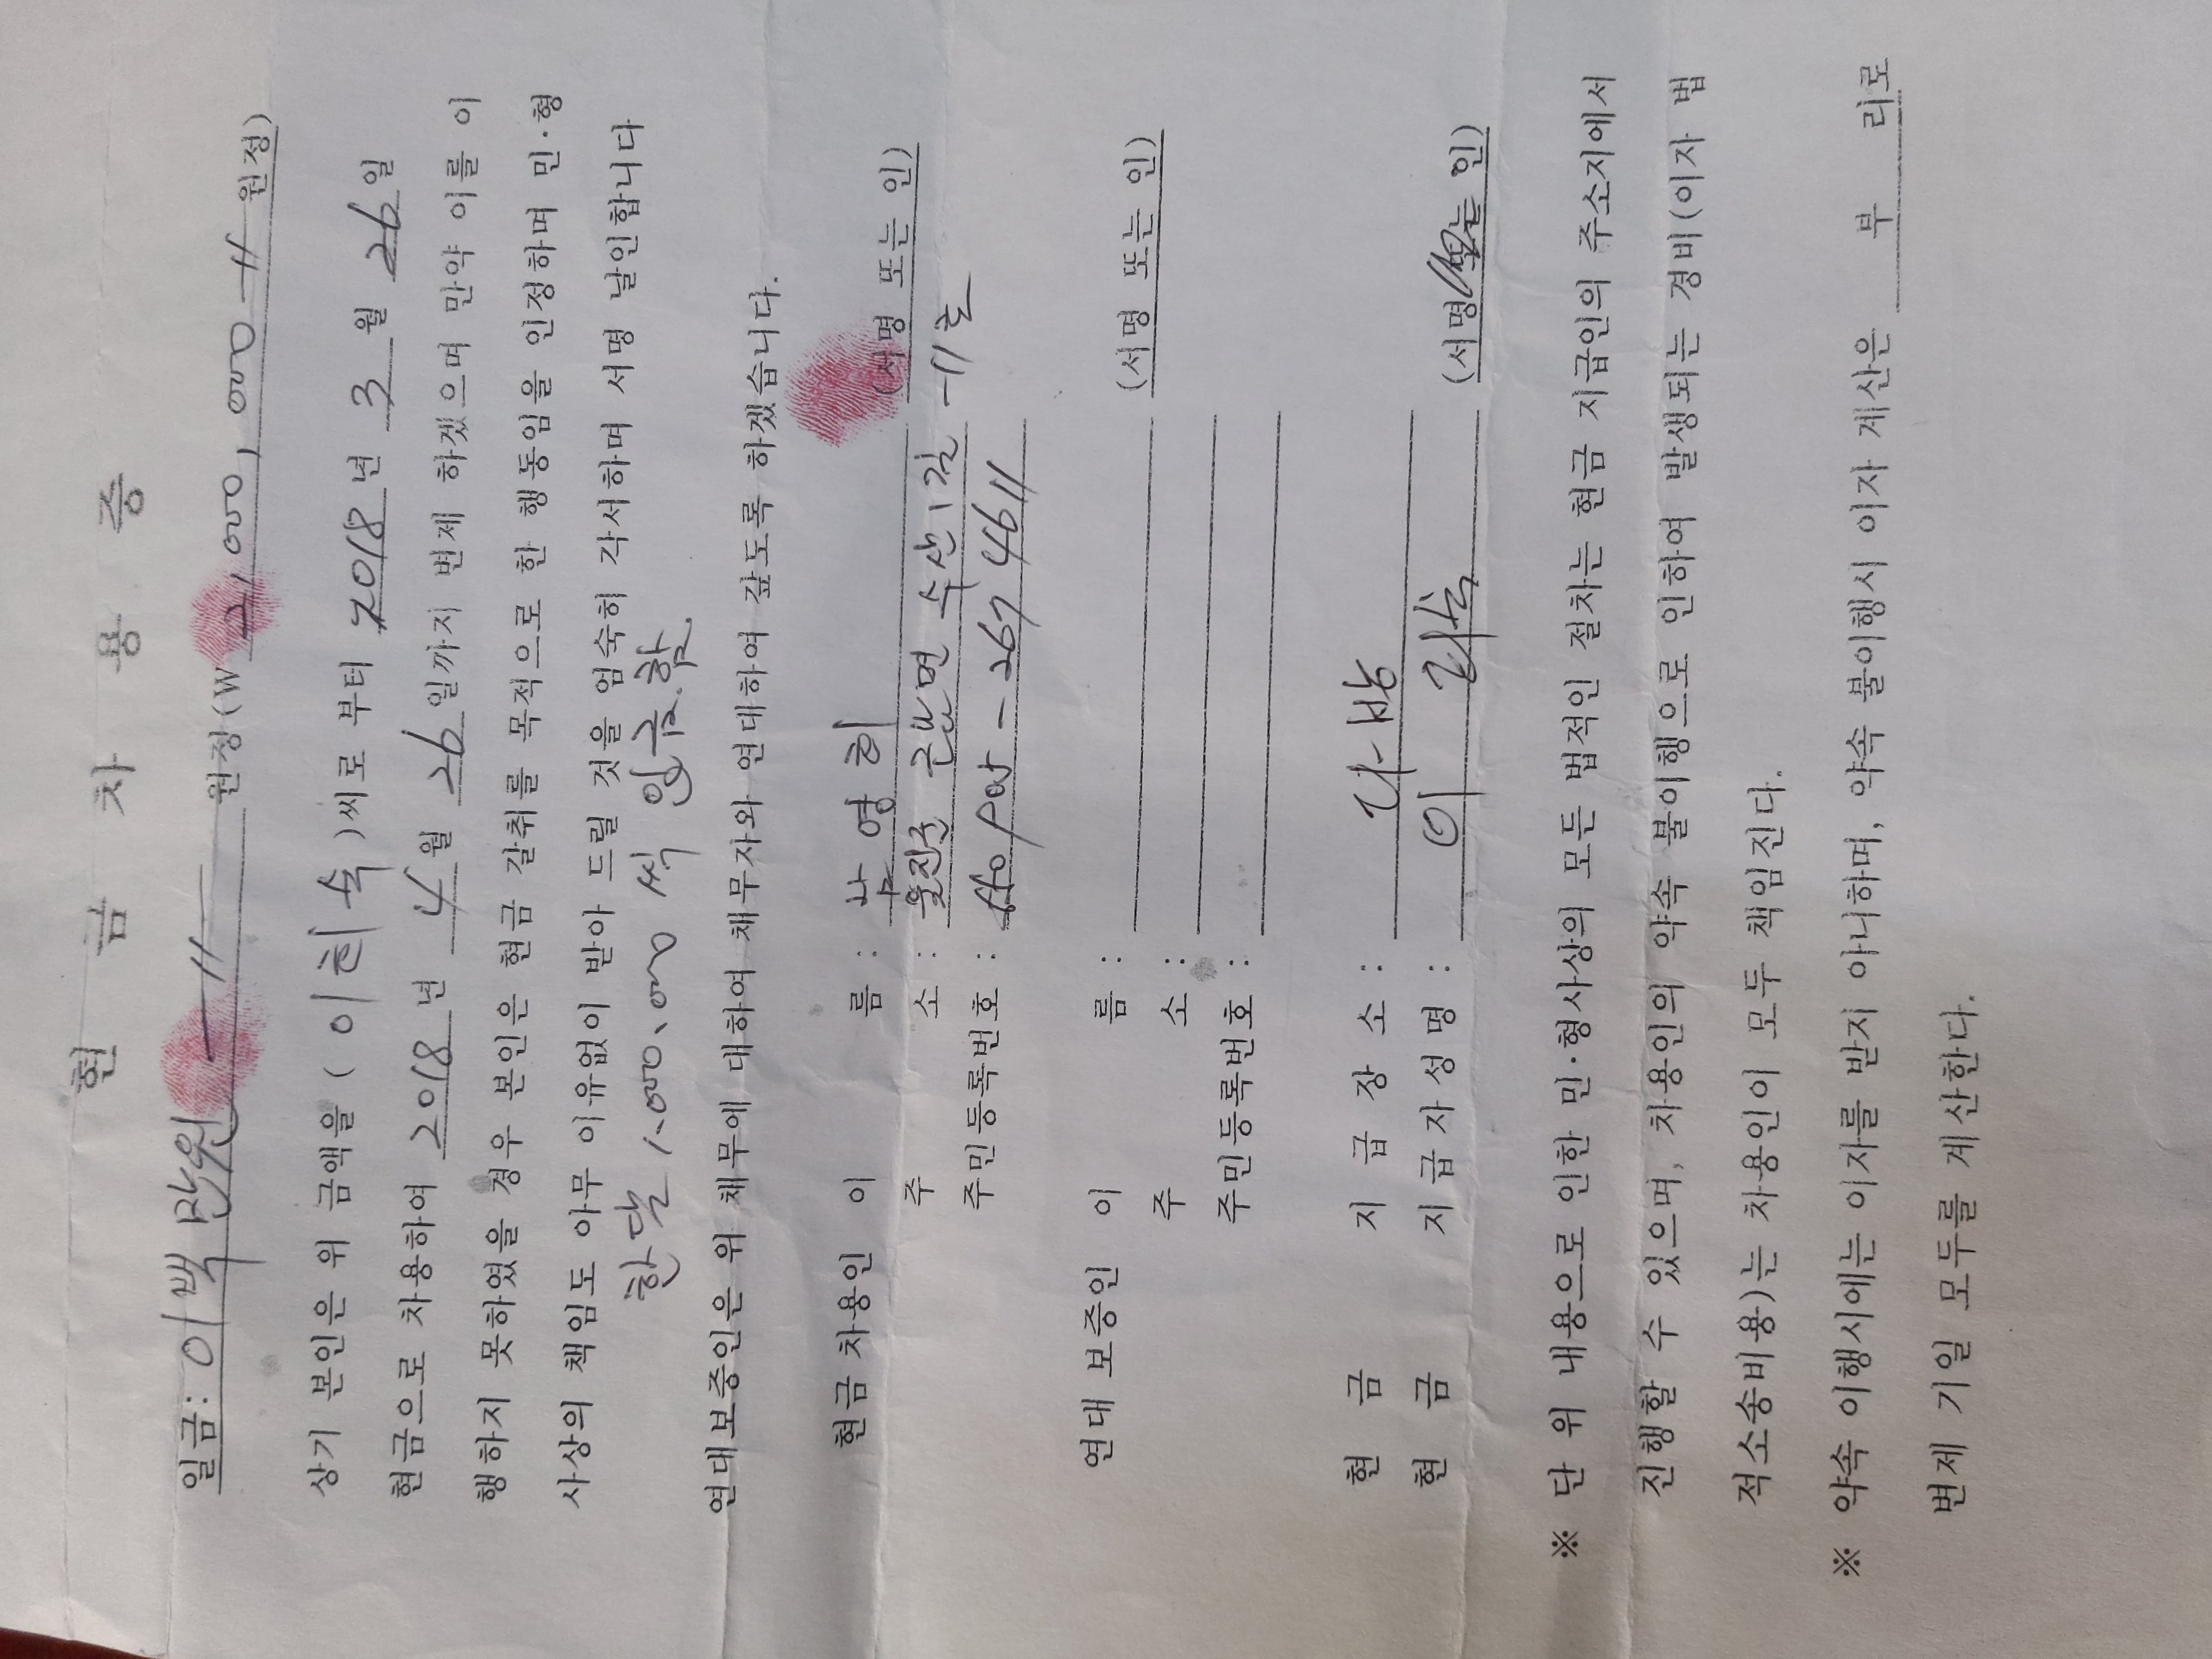 현 금 차 용 증
일금: 이백만원 —〃— 원정(W 2,000,000 —〃— 원정)
상기 본인은 위 금액을 ( 이희숙 )씨로 부터 2018 년 3 월 26 일
현금으로 차용하여 2018 년 4 월 26 일까지 변제 하겠으며 만약 이를 이
행하지 못하였을 경우 본인은 현금 갈취를 목적으로 한 행동임을 인정하며 민·형
사상의 책임도 아무 이유없이 받아 드릴 것을 엄숙히 각서하며 서명 날인합니다
한달 1.000.000 씩 입금.함.
연대보증인은 위 채무에 대하여 채무자와 연대하여 갚도록 하겠습니다.
현금 차용인 이 름 : 영희 (서명 또는 인)
주 소 : 울진군 근남면 수산1길 -11호
주민등록번호 : - 267 4611
연대 보증인 이 름 : (서명 또는 인)
주 소 :
주민등록번호 :
현 금 지 급 장 소 : 다방
현 금 지 급 자 성 명 : 이 희숙 (서명 또는 인)
※ 단 위 내용으로 인한 민·형사상의 모든 법적인 절차는 현금 지급인의 주소지에서
진행할 수 있으며, 차용인의 약속 불이행으로 인하여 발생되는 경비(이자 법
적소송비용)는 차용인이 모두 책임진다.
※ 약속 이행시에는 이자를 받지 아니하며, 약속 불이행시 이자 계산은 부 리로
변제 기일 모두를 계산한다.